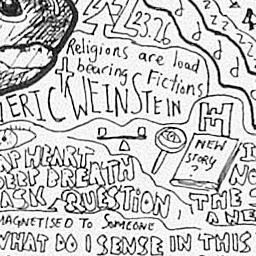 23.26
Religions are load
bearing Fictions
ERIC WEINSTEIN
NEW
STORY
?
HEART
DEEP BREATH
ASK QUESTION
THE
A NE
MAGNETISED TO SOMEONE
WHAT DO I SENSE IN THIS